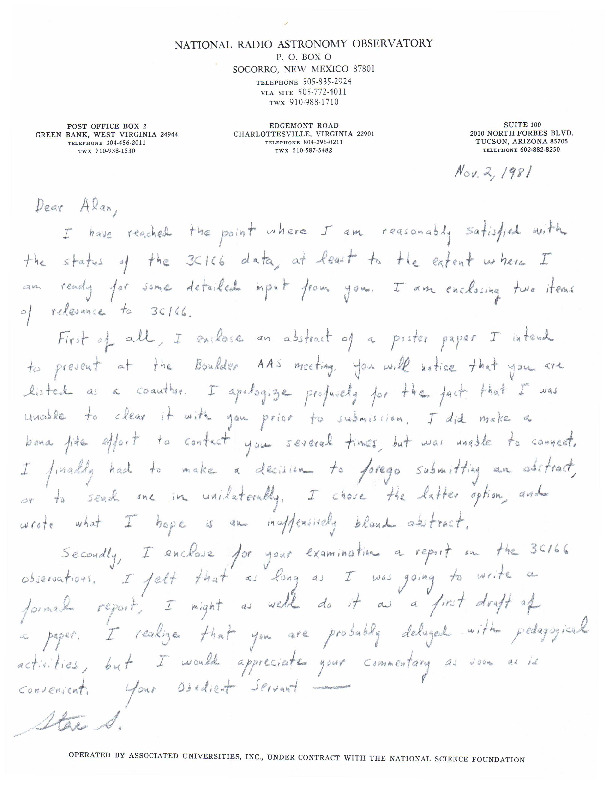 NATIONAL RADIO ASTRONOMY OBSERVATORY
P. O. BOX O
SOCORRO, NEW MEXICO 87801
TELEPHONE 505-835-2924
VIA SITE 505-772-4011
TWX 910-988-1710
POST OFFICE BOX 2
GREEN BANK, WEST VIRGINIA 24944
TELEPHONE 304-456-2011
TWX 710-938-1530
EDGEMONT ROAD
CHARLOTTESVILLE, VIRGINIA 22901
TELEPHONE 804-296-0211
TWX 510-587-5482
SUITE 100
2010 NORTH FORBES BLVD.
TUCSON, ARIZONA 85705
TELEPHONE 602-882-8250
Nov. 2, 1981
Dear Alan,
I have reached the point where I am reasonably satisfied with
the status of the 3C166 data, at least to the extent where I
am ready for some detailed input from you. I am enclosing two items
of relevance to 3C166.
First of all, I enclose an abstract of a poster paper I intend
to present at the Boulder AAS meeting. You will notice that you are
listed as a coauthor. I apologize profusely for the fact that I was
unable to clear it with you prior to submission. I did make a
bona fide effort to contact you several times, but was unable to connect.
I finally had to make a decision to forego submitting an abstract,
or to send one in unilaterally. I chose the latter option, and
wrote what I hope is an inoffensively bland abstract.
Secondly, I enclose for your examination a report on the 3C166
observations. I felt that as long as I was going to write a
formal report, I might as well do it as a first draft of
a paper. I realize that you are probably deluged with pedagogical
activities, but I would appreciate your commentary as soon as is
convenient. Your Obedient Servant —
S.
OPERATED BY ASSOCIATED UNIVERSITIES, INC., UNDER CONTRACT WITH THE NATIONAL SCIENCE FOUNDATION